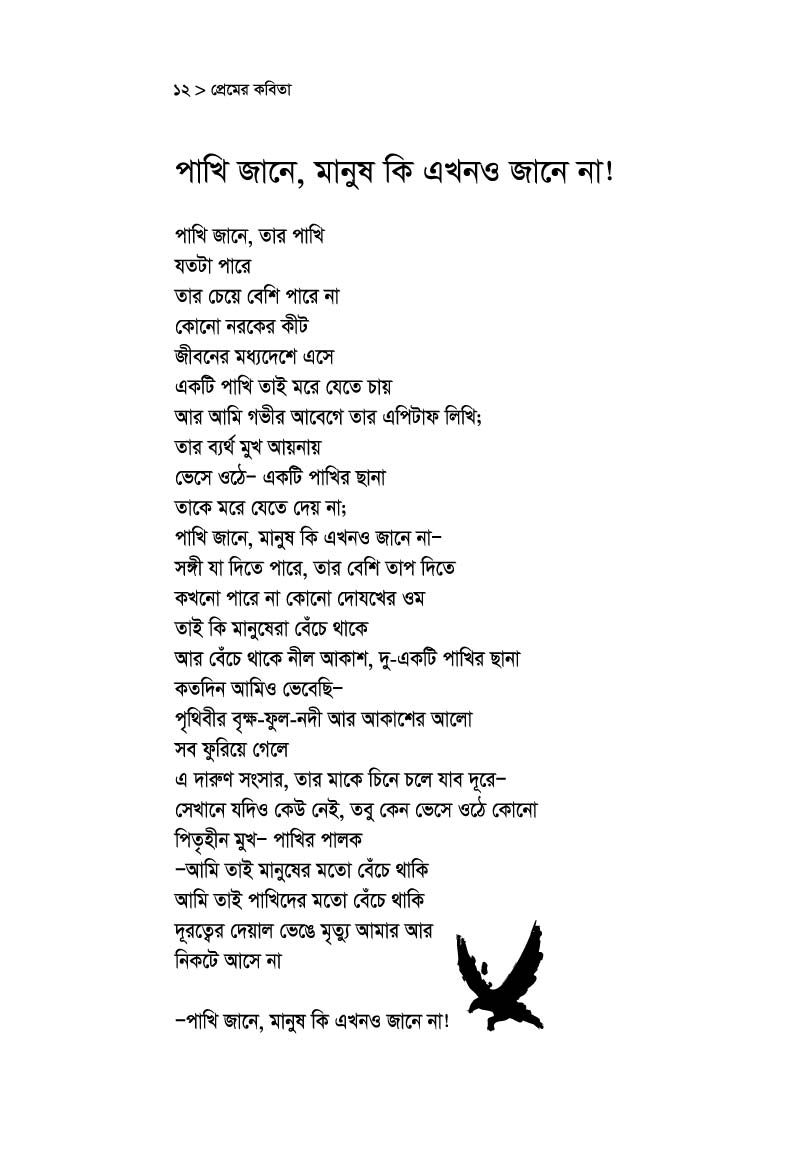 ১২ > প্রেমের কবিতা
পাখি জানে, মানুষ কি এখনও জানে না!
পাখি জানে, তার পাখি
যতটা পারে
তার চেয়ে বেশি পারে না
কোনো নরকের কীট
জীবনের মধ্যদেশে এসে
একটি পাখি তাই মরে যেতে চায়
আর আমি গভীর আবেগে তার এপিটাফ লিখি;
তার ব্যর্থ মুখ আয়নায়
ভেসে ওঠে– একটি পাখির ছানা
তাকে মরে যেতে দেয় না;
পাখি জানে, মানুষ কি এখনও জানে না–
সঙ্গী যা দিতে পারে, তার বেশি তাপ দিতে
কখনো পারে না কোনো দোযখের ওম
তাই কি মানুষেরা বেঁচে থাকে
আর বেঁচে থাকে নীল আকাশ, দু-একটি পাখির ছানা
কতদিন আমিও ভেবেছি–
পৃথিবীর বৃক্ষ-ফুল-নদী আর আকাশের আলো
সব ফুরিয়ে গেলে
এ দারুণ সংসার, তার মাকে চিনে চলে যাব দূরে–
সেখানে যদিও কেউ নেই, তবু কেন ভেসে ওঠে কোনো
পিতৃহীন মুখ– পাখির পালক
–আমি তাই মানুষের মতো বেঁচে থাকি
আমি তাই পাখিদের মতো বেঁচে থাকি
দূরত্বের দেয়াল ভেঙে মৃত্যু আমার আর
নিকটে আসে না
–পাখি জানে, মানুষ কি এখনও জানে না!